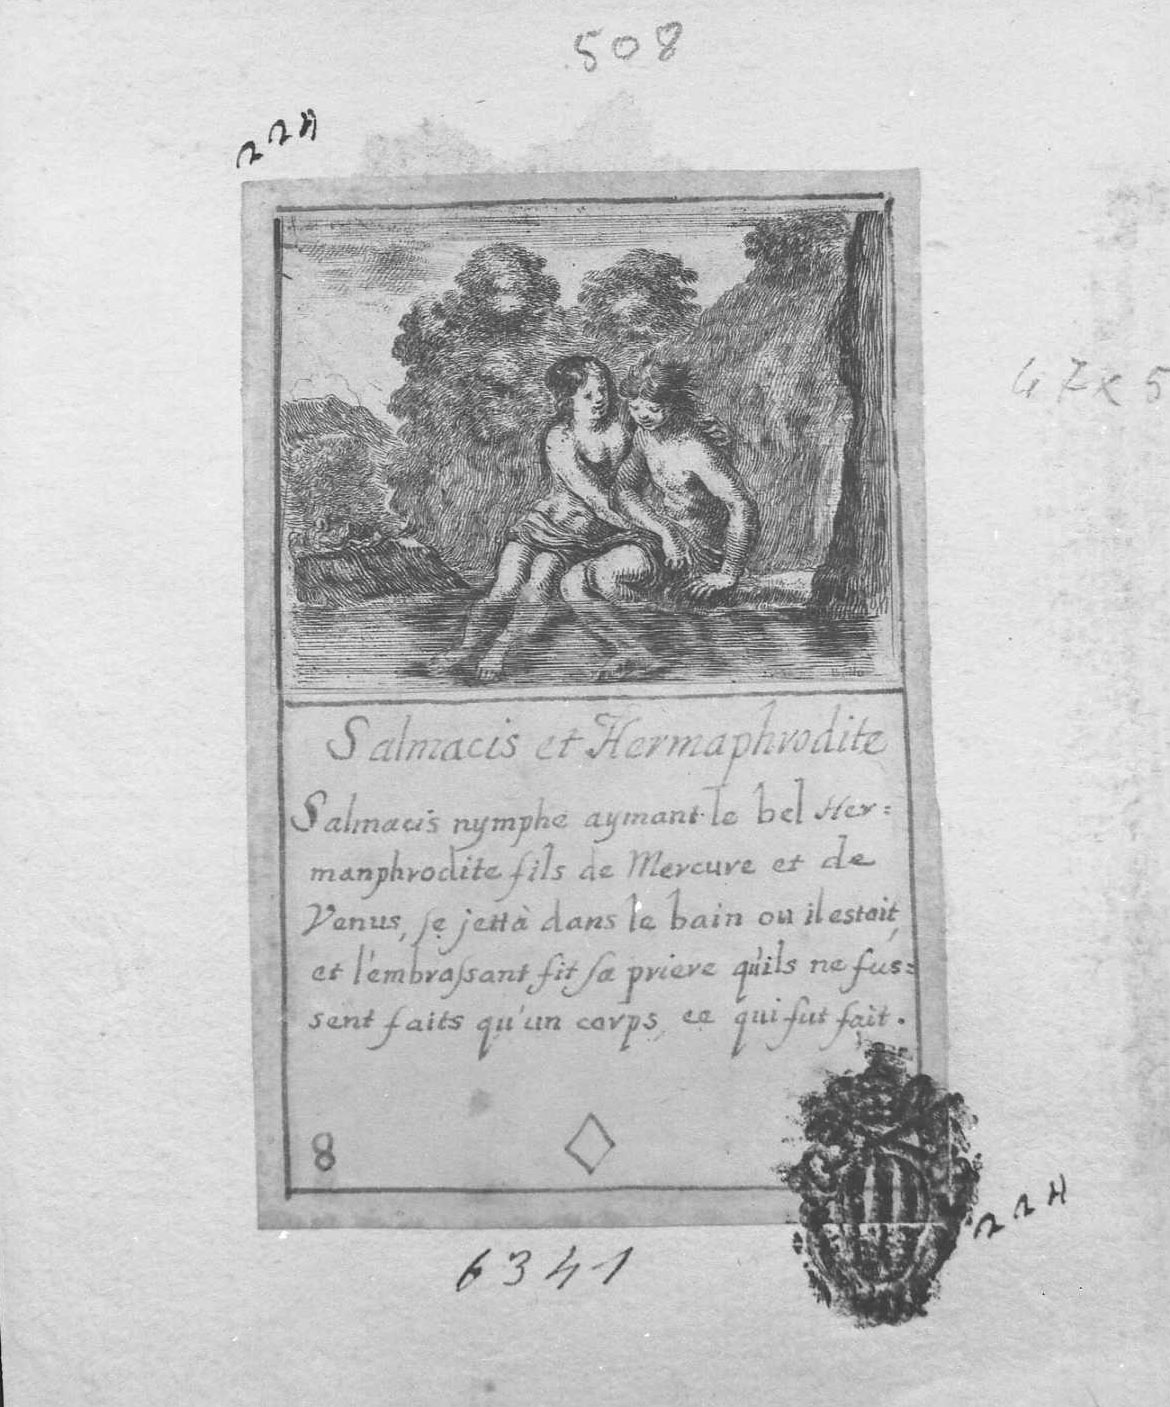 508
22A
47x5
Salmacis et Hermaphrodite
Salmacis nymphe aymant le bel Her=
manphrodite fils de Mercure et de
Venus, se jettà dans le bain ou il estoit,
et l'embrassant fit sa priere qu'ils ne fus=
sent faits qu'un corps, ce qui fut fait.
8
22A
6341